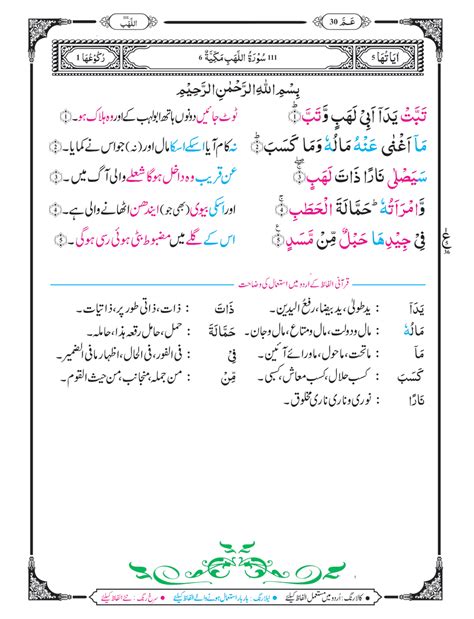 اللَّهَب
عَمَّ 30
رُكُوْعُهَا 1
111 سُوْرَةُ اللَّهَبِ مَكِّيَّةٌ 6
اٰيَاتُهَا 5
بِسْمِ اللّٰهِ الرَّحْمٰنِ الرَّحِيْمِ
تَبَّتْ يَدَآ اَبِيْ لَهَبٍ وَّتَبَّ ۝١ ٹوٹ جائیں دونوں ہاتھ ابولہب کے اور وہ ہلاک ہو۔ ۝١
مَآ اَغْنٰى عَنْهُ مَالُهٗ وَمَا كَسَبَ ۝٢ نہ کام آیا اسکے اسکا مال اور (نہ) جو اس نے کمایا۔ ۝٢
سَيَصْلٰى نَارًا ذَاتَ لَهَبٍ ۝٣ عن قریب وہ داخل ہوگا شعلے والی آگ میں۔ ۝٣
وَّامْرَاَتُهٗ حَمَّالَةَ الْحَطَبِ ۝٤ اور اسکی بیوی (بھی جو) ایندھن اٹھانے والی ہے۔ ۝٤
فِيْ جِيْدِهَا حَبْلٌ مِّنْ مَّسَدٍ ۝٥ اس کے گلے میں مضبوط بٹی ہوئی رسی ہوگی۔ ۝٥
قرآنی الفاظ کے اُردو میں استعمال کی وضاحت
يَدَآ : ید طولیٰ، ید بیضا، رفع الیدین۔ ذَاتَ : ذات، ذاتی طور پر، ذاتیات۔
مَالُهٗ : مال و دولت، مال و متاع، مال و جان۔ حَمَّالَةَ : حمل، حامل رقعہ ہذا، حاملہ۔
مَآ : ماتحت، ماحول، ماورائے آئین۔ فِيْ : فی الفور، فی الحال، اظہار ما فی الضمیر۔
كَسَبَ : کسب حلال، کسب معاش، کسبی۔ مِنْ : من جملہ، منجانب، من حیث القوم۔
نَارًا : نوری و ناری، ناری مخلوق۔
کالا رنگ: اُردو میں مستعمل الفاظ کیلئے • نیلا رنگ: بار بار استعمال ہونے والے الفاظ کیلئے • سرخ رنگ: نئے الفاظ کیلئے